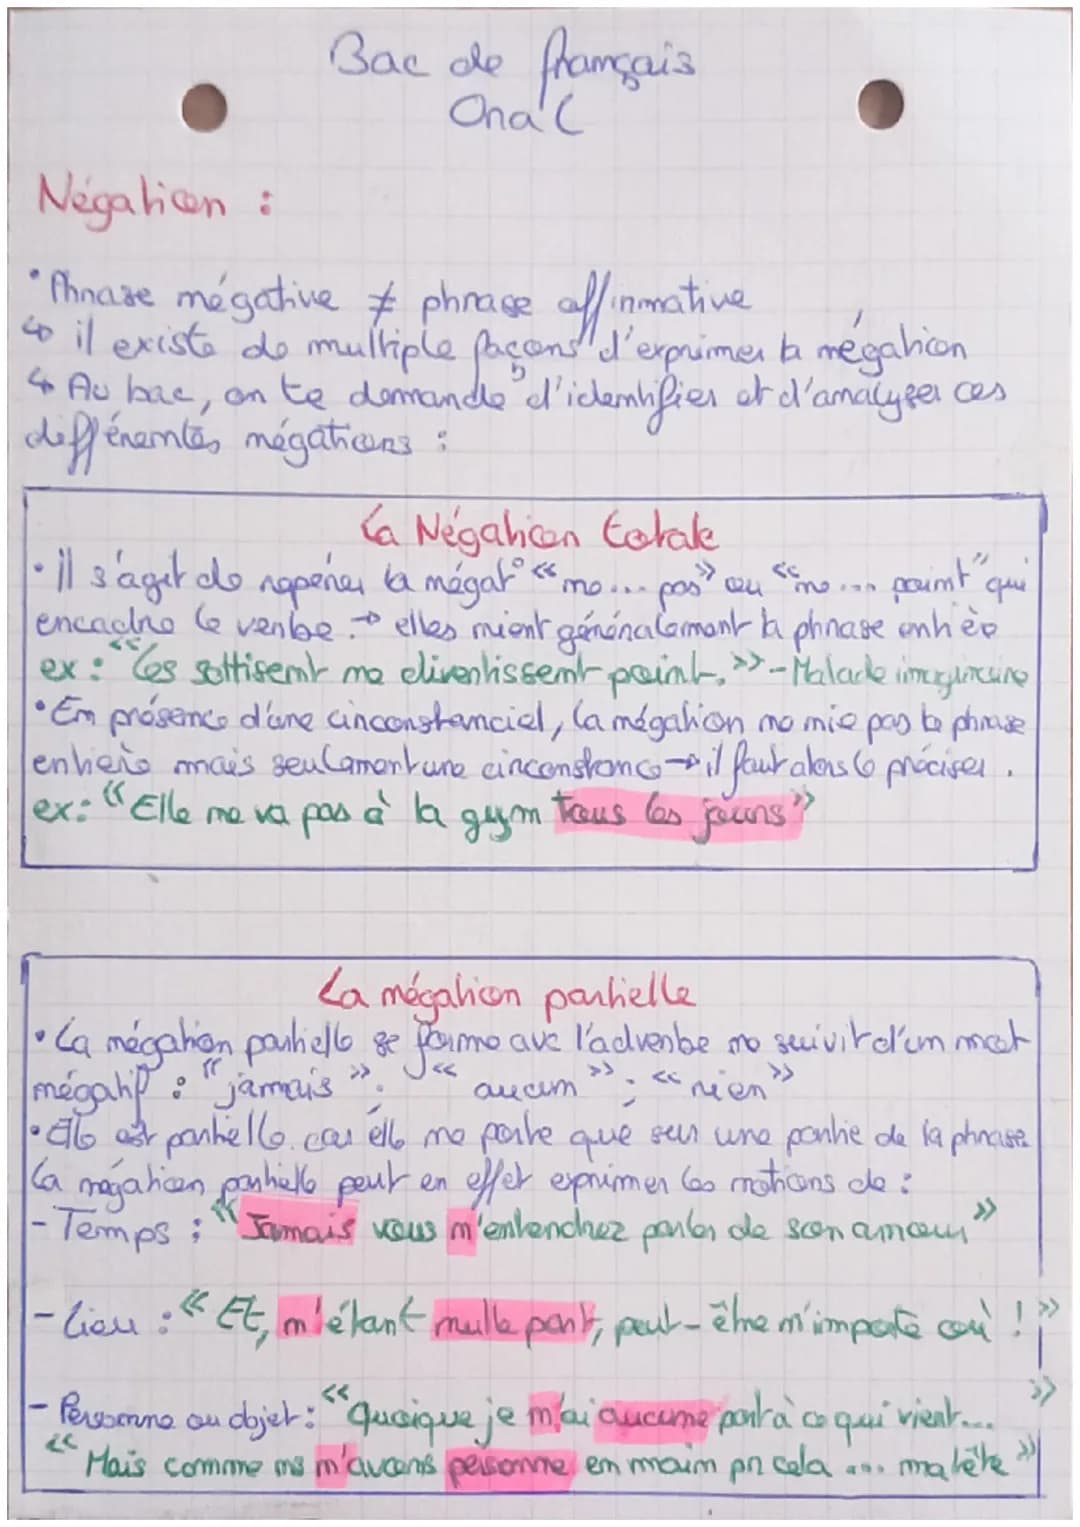 Bac de français
Oral
Négation :
• Phrase négative ≠ phrase affirmative
↳ il existe de multiple façons d'exprimer la négation
↳ Au bac, on te demande d'identifier et d'analyser ces
différentes négations :
La Négation totale
• il s'agit de repérer la négat° « ne... pas » ou « ne... point " qui
encadre le verbe. → elles nient généralement la phrase entière
ex : " Les sottises ne divertissent point. » - Malade imaginaire
• En présence d'une circonstanciel, la négation ne nie pas la phrase
entière mais seulement une circonstance → il faut alors le préciser.
ex : " Elle ne va pas à la gym tous les jours "
La négation partielle
• La négation partielle se forme avc l'adverbe ne suivit d'un mot
négatif : " jamais " ; « aucun » ; « rien »
• Elle est partielle car elle ne porte que sur une partie de la phrase.
La négation partielle peut en effet exprimer les notions de :
- Temps : " Jamais vous n'entendrez parler de son amour »
- Lieu : « Et, n'étant nulle part, peut-être n'importe où ! »
- Personne ou objet : « Quoique je n'ai aucune part à ce qui vient... »
« Mais comme ns n'avons personne en main pr cela ... ma tête »